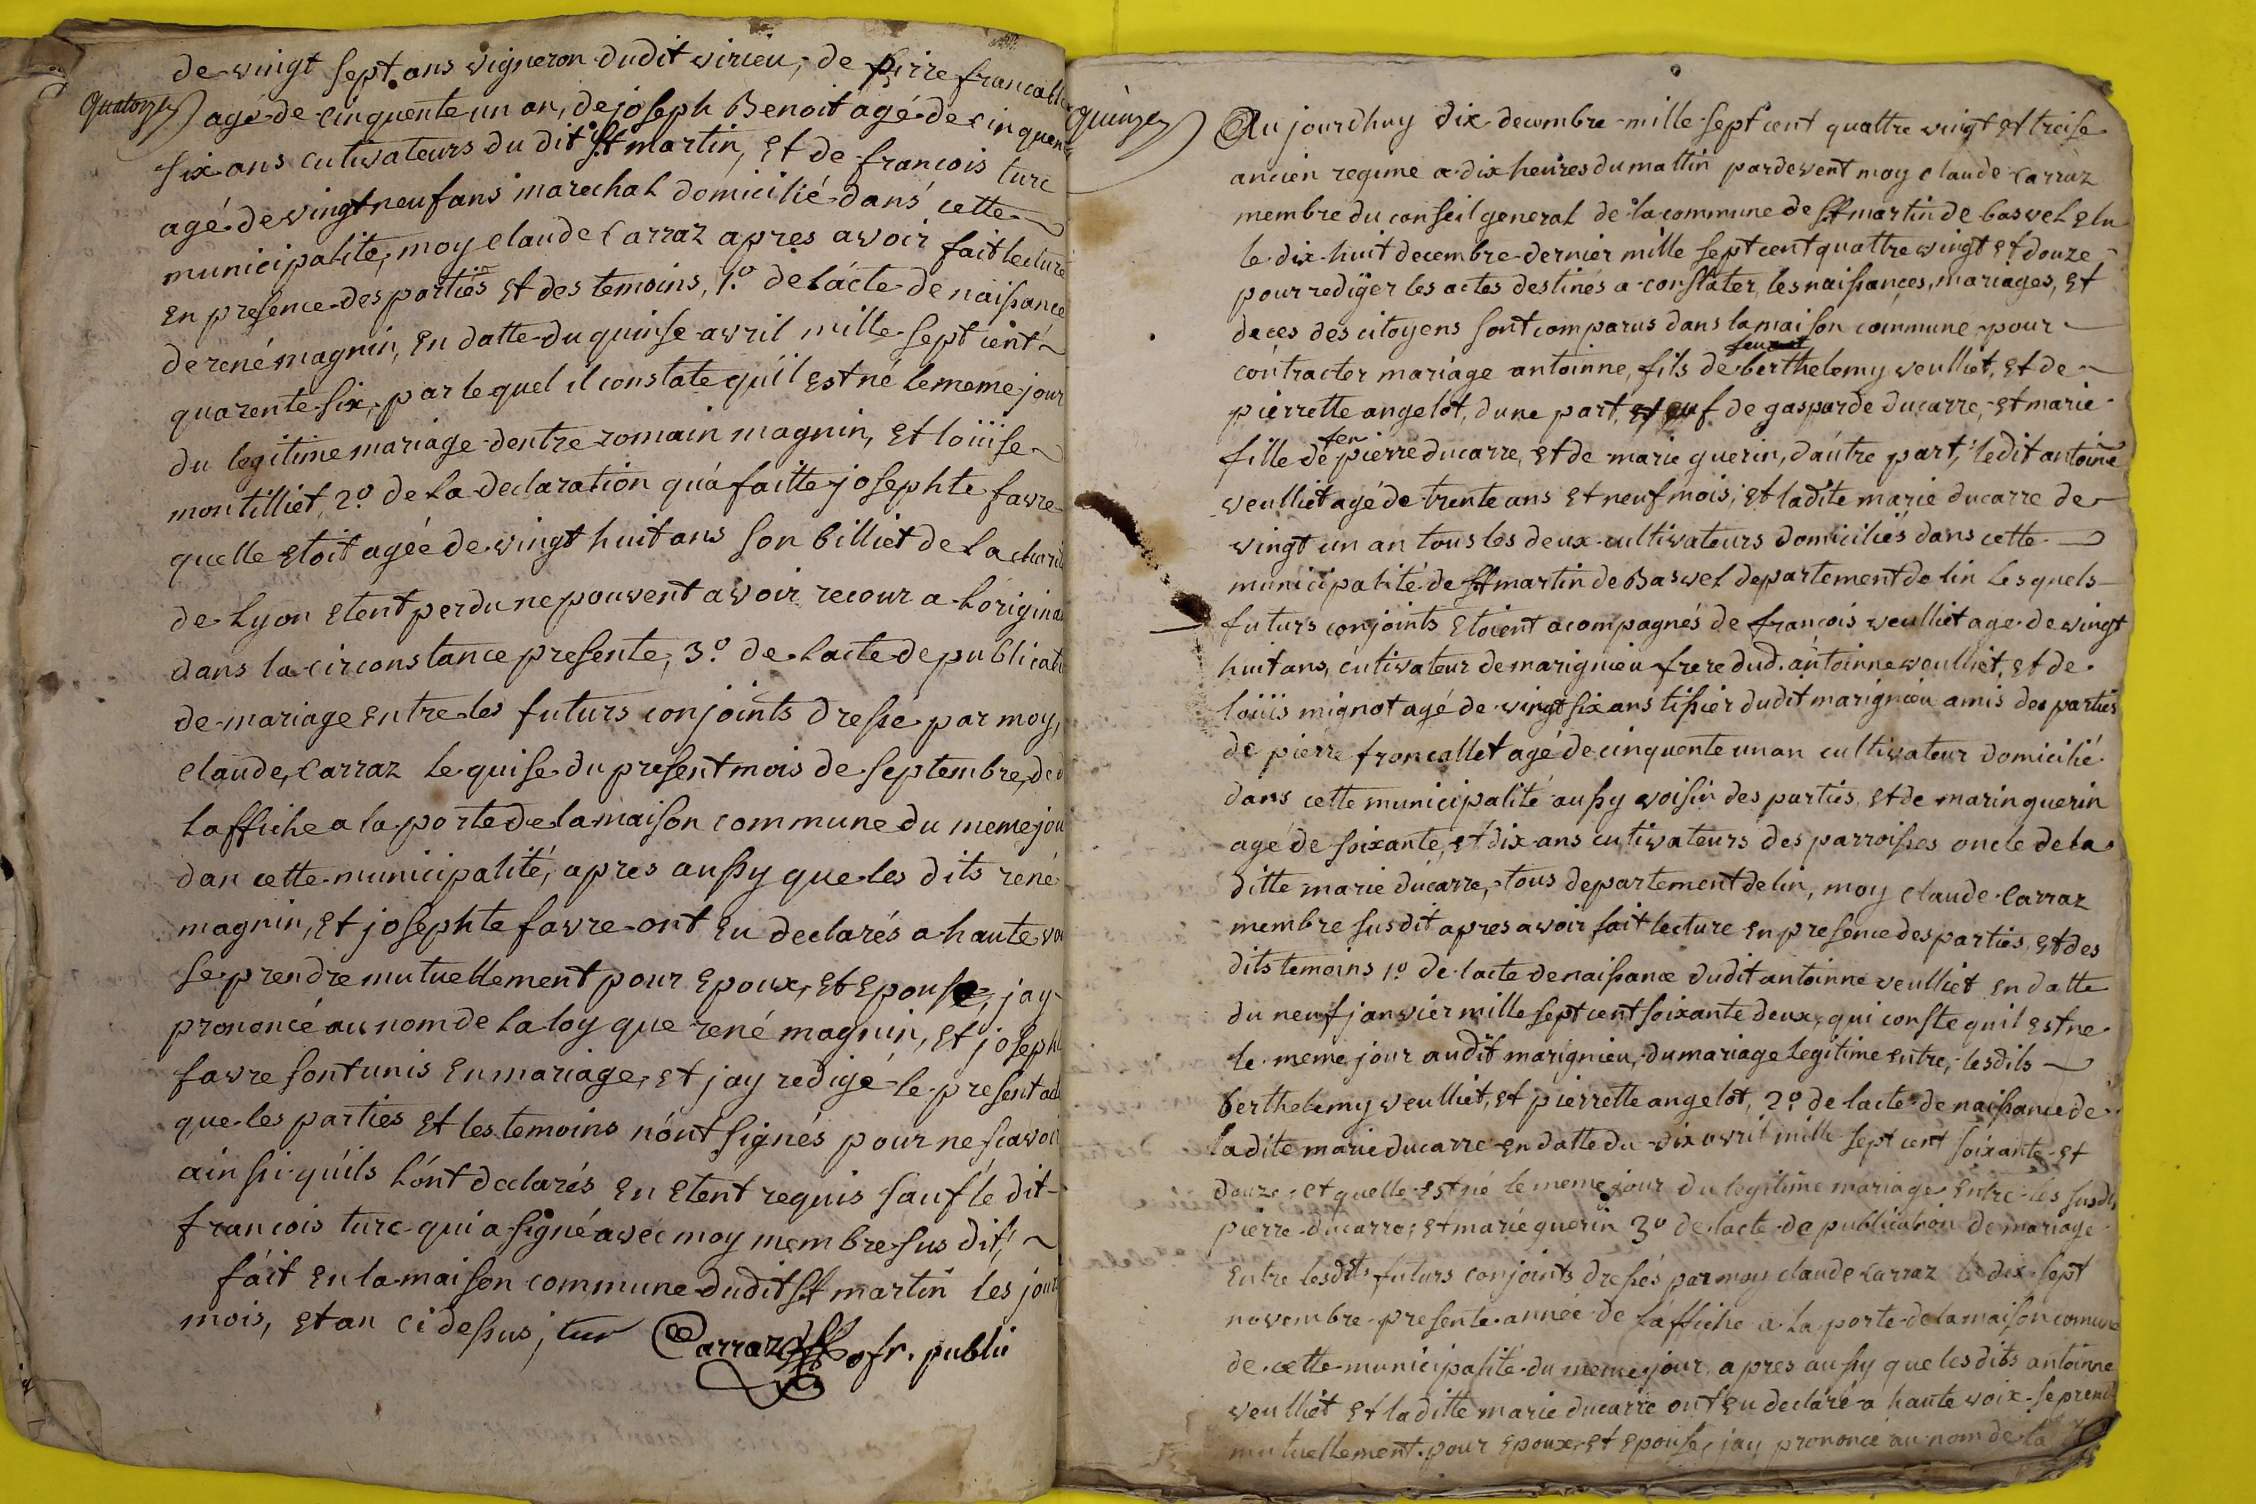 quatorze
de vingt sept ans vigneron dudit virieu, de pierre francalle
agé de cinquente un an, de joseph Benoit agé de cinquen
six ans cutivateurs du dit St martin, Et de francois turc
agé de vingt neuf ans marechal domicilié dans cette
municipalité, moy claude Carraz apres avoir fait lecture
En presence des parties Et des temoins, 1.º de lácte de naissance
de rené magnin, En datte du quinse avril mille sept cent
quarente six, par le quel il constate qúil Est né le meme jour
du legitime mariage dentre romain magnin, Et loüise
montilliet, 2.º de la declaration quá faitte josephte favre
quelle Etoit agée de vingt huit ans son billiet de la charit
de Lyon Etent perdu ne pouvent avoir recour a Loriginal
dans la circonstance presente, 3.º de lacte de publicati
de mariage Entre les futurs conjoints dressé par moy,
claude, Carraz le quise du present mois de septembre, de
laffiche a la porte de la maison commune du meme jou
dan cette municipalité, apres aussy que les dits réné
magnin, Et josephte favre ont Eu declarés a haute vo
se prendre mutuellement pour Epoux, Et Epouse, jay
prononcé au nom de la loy que rené magnin, Et joseph
favre sont unis En mariage, Et jay redigé le present act
que les parties Et les temoins nónt signés pour ne scavoi
ainssi qúils lónt declarés En Etent requis sauf le dit
francois turc qui a signé avec moy membre sus dit,
fáit En la maison commune dudit St martin les jour
mois, Et an ci dessus, tur Carraz ofr. publi
quinze
Au jourdhuy dix decembre mille sept cent quattre vingt Et treise
ancien regime a dix heures du mattin pardevent moy claude Carraz
membre du conseil general de la commune de St martin de basvel Elu
le dix huit decembre dernier mille sept cent quattre vingt Et douze
pour rediger les actes destinés a constater, les naissances, mariages, Et
deces des citoyens sont comparus dans la maison commune pour
contracter mariage antoinne, fils de berthelemy veulliet, Et de
pierrette angelot, dune part, Et veuf de gasparde ducarre, Et marie
fille de feu pierre ducarre, Et de marie guerin, dáutre part, ledit antoine
veulliet agé de trente ans Et neuf mois, Et ladite marie ducarre de
vingt un an tous les deux cultivateurs domiciliés dans cette
municipalité de St martin de Basvel departement de lin Lesquels
futurs conjoints Etoient acompagnés de francois veulliet age de vingt
huit ans, cutivateur de marignieu frere dud. antoinne veulliet, Et de
loüis mignot agé de vingt six ans tissier dudit marignieu amis des parties
de pierre francallet agé de cinquente un an cultivateur domicilié
dans cette municipalité aussy voisin des parties, Et de marin guerin
agé de soixante, Et dix ans cutivateurs des parroisses oncle de la
ditte marie ducarre, tous departement de lin, moy claude Carraz
membre susdit apres avoir fait lecture En presence des parties, Et des
dits temoins 1.º de lacte de naissance dudit antoinne veulliet En datte
du neuf janvier mille sept cent soixante deux, qui conste quil Est né
le meme jour audit marignieu, du mariage legitime Entre, lesdits
berthelemy veulliet, Et pierrette angelot, 2.º de lacte de naissance de
ladite marie ducarre En datte du dix avril mille sept cent soixante Et
douze, Et quelle Est né le meme jour du legitime mariage Entre les susdts
pierre ducarre, Et marie guerin 3º de lacte de publication de mariage
Entre lesdts futurs conjoints dressés par moy claude Carraz le dix sept
novembre presente année de láffiche a la porte de la maison comune
de cette municipalité du meme jour, apres aussy que lesdits antoinne
veulliet Et laditte marie ducarre ont Eu declaré a haute voix se prend
mutuellement pour Epoux Et Epouse, jay prononcé au nom de la